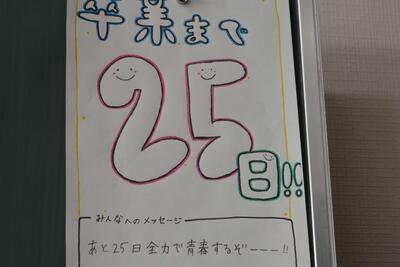 卒業まで
25日!!
みんなへのメッセージ
あと25日全力で青春するぞーーー!!